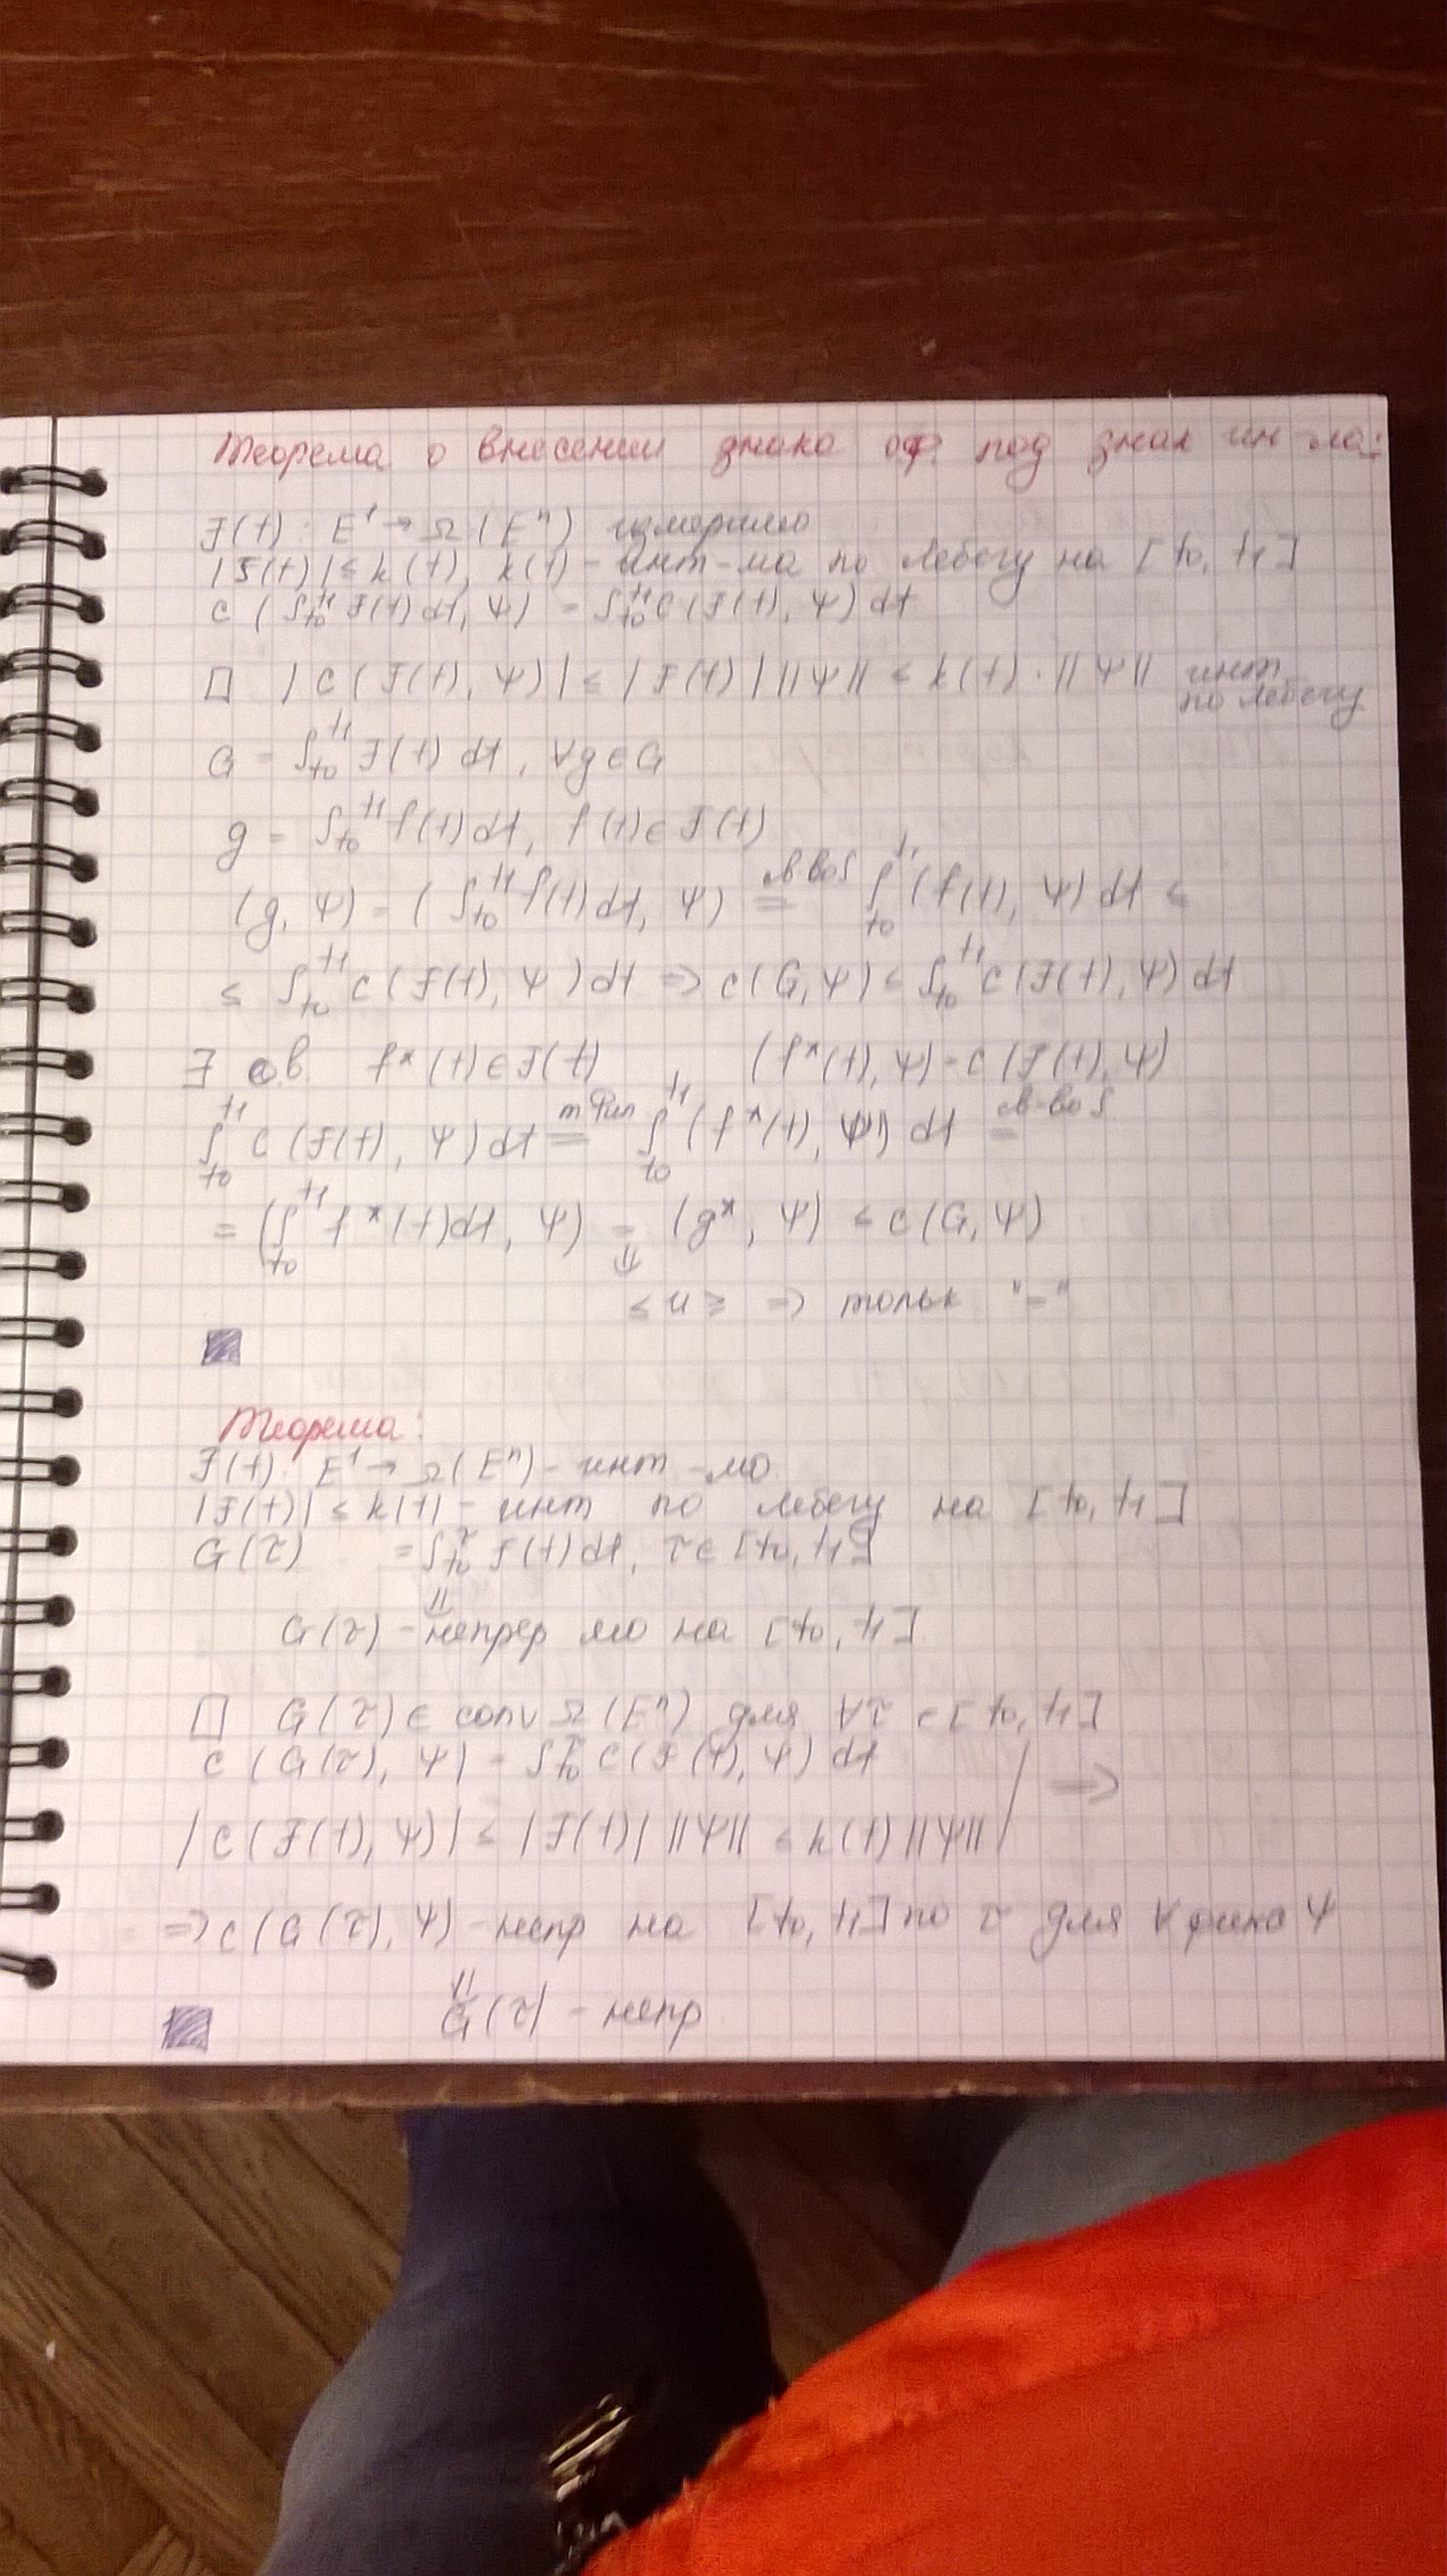 Теорема о внесении знака оф. под знак ин-ла:
F(t): E¹ → Ω(Eⁿ) измеримо
|F(t)| ≤ k(t), k(t) - инт-ма по Лебегу на [t₀, t₁]
c(∫ₜ₀ᵗ¹ F(t)dt, Ψ) = ∫ₜ₀ᵗ¹ c(F(t), Ψ)dt
□ |c(F(t), Ψ)| ≤ |F(t)| ||Ψ|| ≤ k(t)·||Ψ|| инт по Лебегу
G = ∫ₜ₀ᵗ¹ F(t) dt, ∀g∈G
g = ∫ₜ₀ᵗ¹ f(t)dt, f(t)∈F(t)
(g, Ψ) = (∫ₜ₀ᵗ¹ f(t)dt, Ψ) =(св-во ∫) ∫ₜ₀ᵗ¹ (f(t), Ψ)dt ≤
≤ ∫ₜ₀ᵗ¹ c(F(t), Ψ)dt ⇒ c(G, Ψ) ≤ ∫ₜ₀ᵗ¹ c(F(t), Ψ)dt
∃ о.в. f*(t)∈F(t) (f*(t), Ψ) = c(F(t), Ψ)
∫ₜ₀ᵗ¹ c(F(t), Ψ)dt =(т Фил) ∫ₜ₀ᵗ¹ (f*(t), Ψ)dt =(св-во ∫)
= (∫ₜ₀ᵗ¹ f*(t)dt, Ψ) = (g*, Ψ) ≤ c(G, Ψ)
⇓
≤ и ≥ ⇒ тольк "="
Теорема:
F(t): E¹ → Ω(Eⁿ) - инт-мо
|F(t)| ≤ k(t) - инт по Лебегу на [t₀, t₁]
G(τ) = ∫ₜ₀^τ F(t)dt, τ∈[t₀, t₁]
⇓
G(τ) - непрер мо на [t₀, t₁]
□ G(τ) ∈ conv Ω(Eⁿ) для ∀τ∈[t₀, t₁]
c(G(τ), Ψ) = ∫ₜ₀^τ c(F(t), Ψ)dt
|c(F(t), Ψ)| ≤ |F(t)| ||Ψ|| ≤ k(t)||Ψ|| | ⇒
⇒ c(G(τ), Ψ) - непр на [t₀, t₁] по τ для ∀ фикс Ψ
⇓
G(τ) - непр